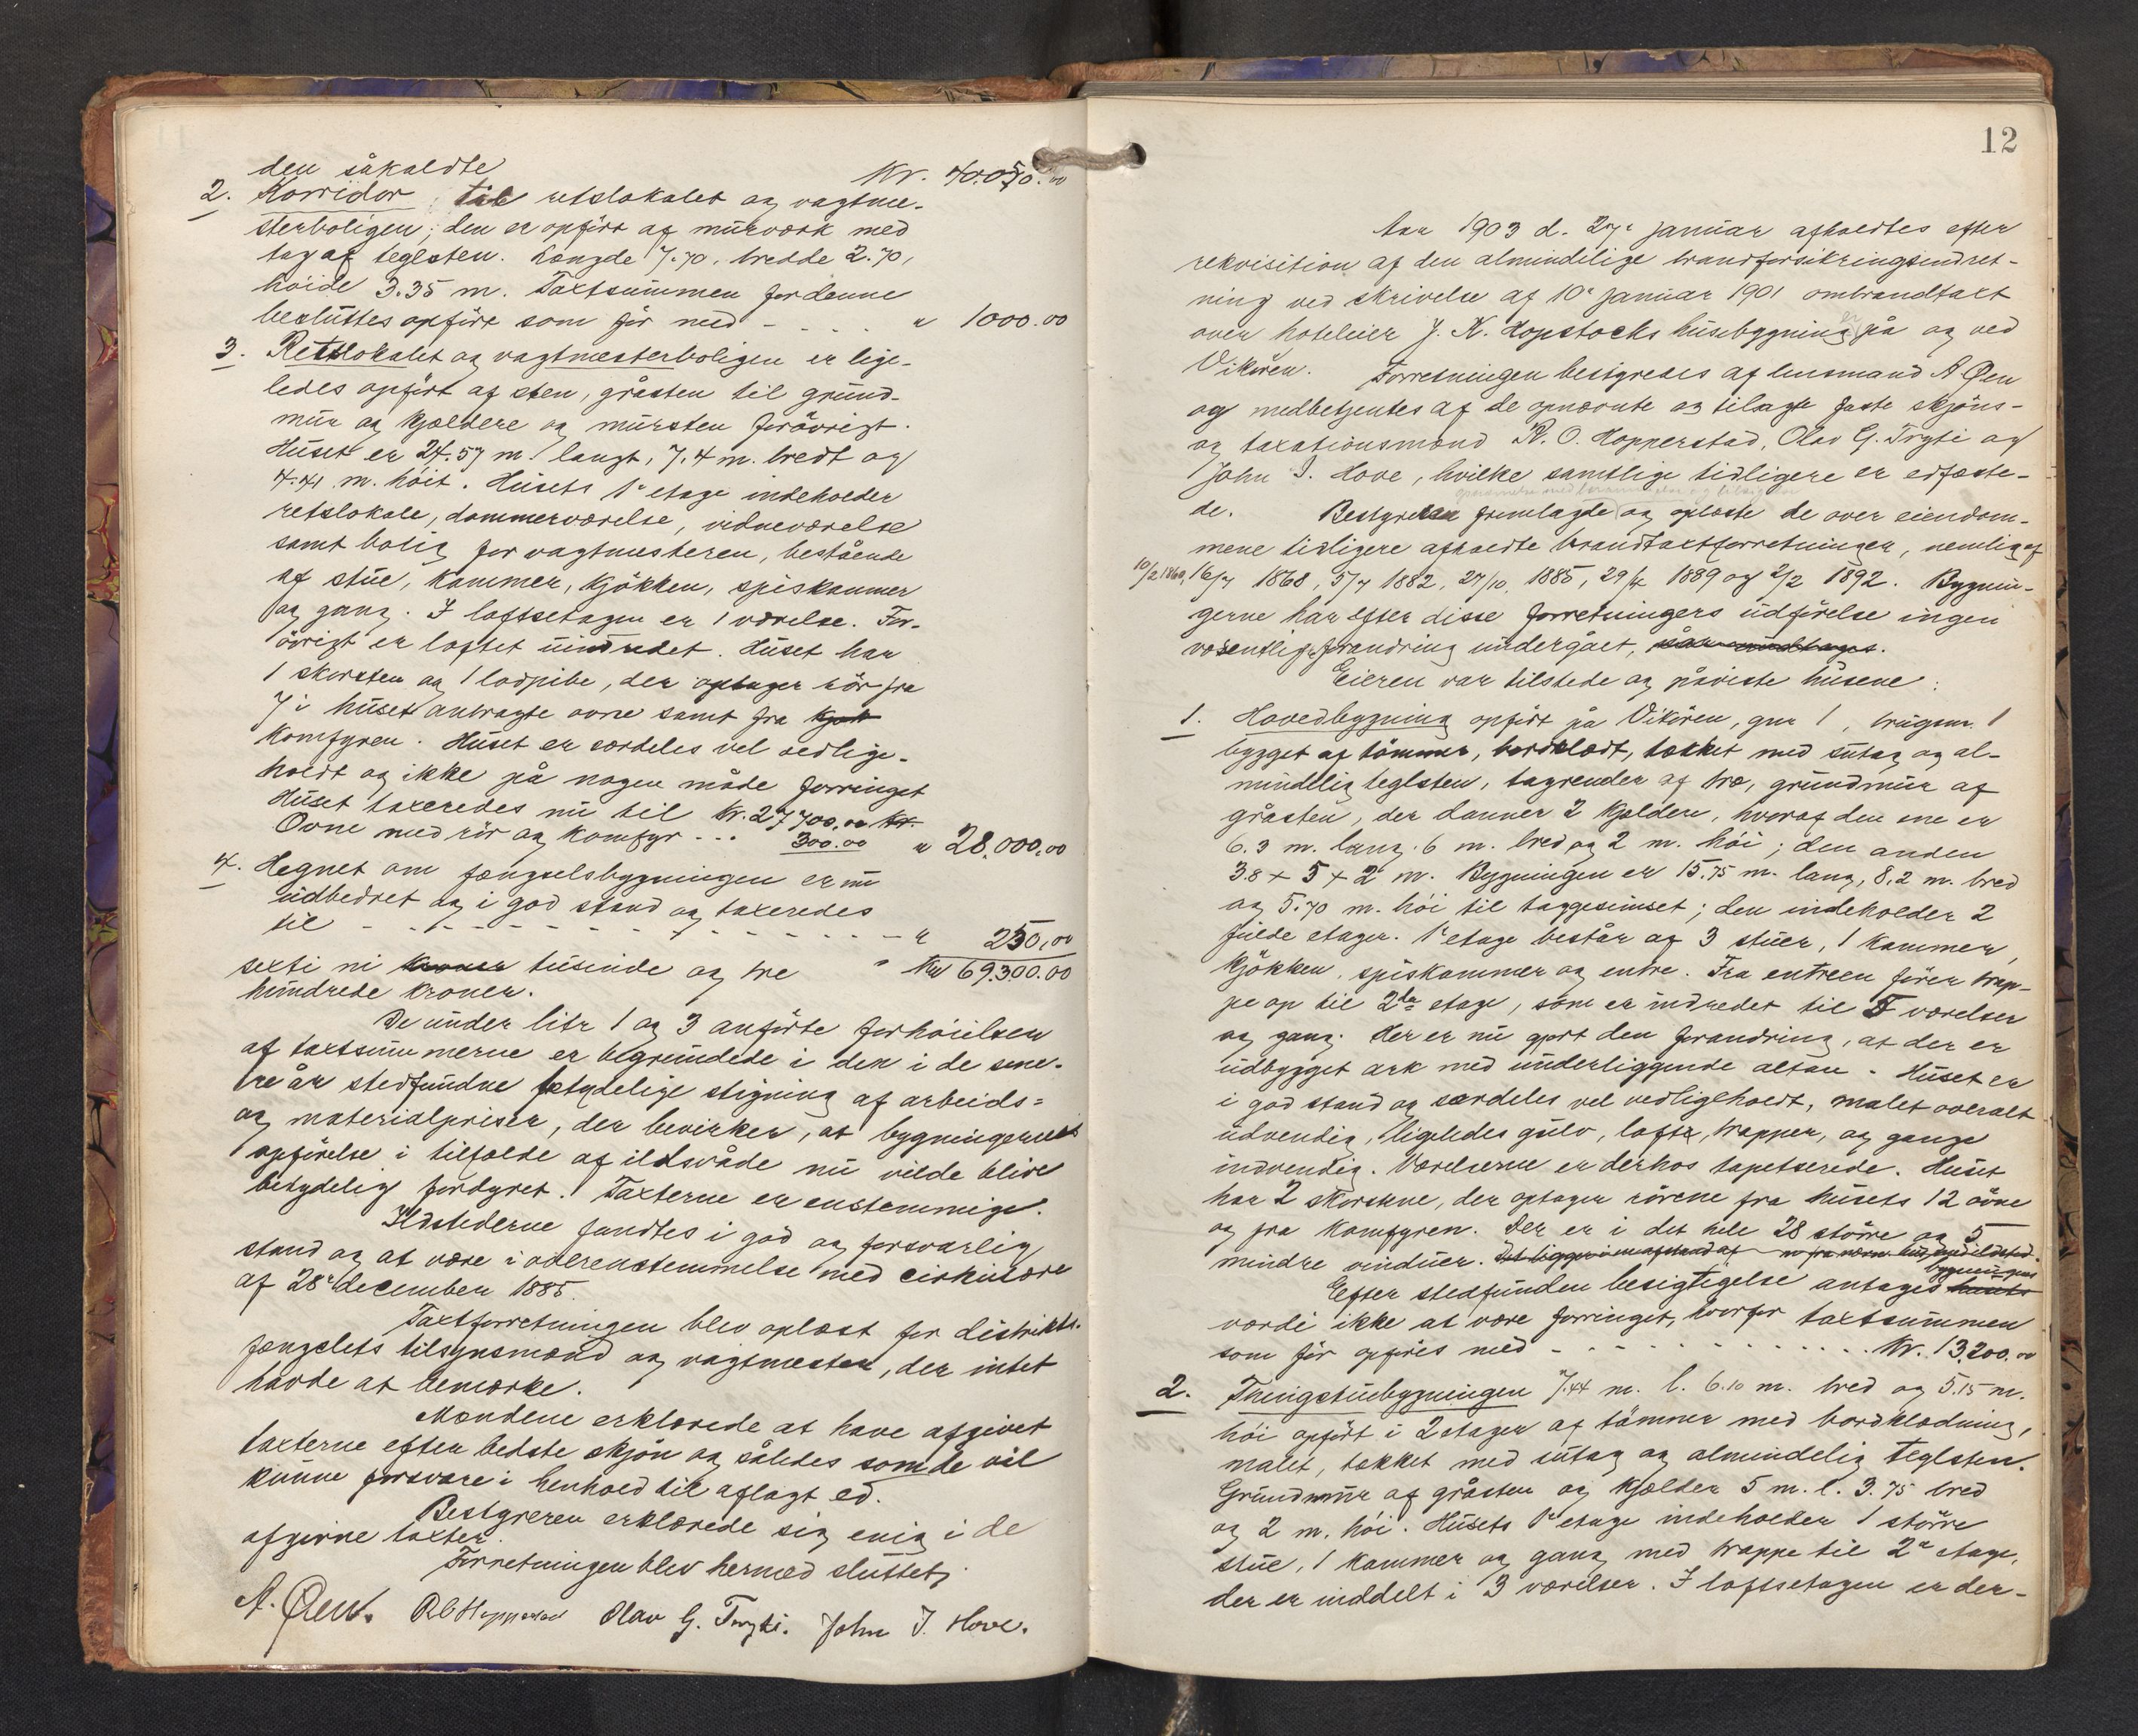 den såkaldte
Kr. 40.050.00
2. Korridor til retslokalet og vagtme-
sterboligen; den er opført af murværk med
tag af teglsten. Længde 7.70, bredde 2.70,
höide 3.35 m. Taxtsummen for denne
besluttes opført som för med - - - - " 1000.00
3. Retslokalet og vagtmesterboligen er lige-
ledes opført af sten, gråsten til grund-
mur og kjældere og mursten forövrigt.
Huset er 24.57 m. langt, 7.4 m. bredt og
4.41 m. höit. Husets 1e etage indeholder
retslokale, dommerværelse, vidneværelse
samt bolig for vagtmesteren, bestående
af stue, kammer, kjökken, spiskammer
og gang. I loftsetagen er 1 værelse. For-
övrigt er loftet uindredet. Huset har
1 skorsten og 1 lodpibe, der optager rör fra
7 i huset anbragte ovne samt fra kjøk
komfyren. Huset er særdeles vel vedlige-
holdt og ikke på nogen måde forringet
Huset taxeredes nu til Kr. 27700.00 kr.
Ovne med rör og komfyr - - - 300.00 " 28.000.00
4. Hegnet om fængselsbygningen er nu
udbedret og i god stand og taxeredes
til - - - - - - - - - - - - " 250,00
sexti ni kroner tusinde og tre " Kr 69.300.00
hundrede kroner.
De under litr 1 og 3 anförte forhöielsen
af taxtsummerne er begrundede i den i de sene-
re år stedfundne betydelige stigning af arbeids-
og materialpriser, der bevirker, at bygningernes
opförelse i tilfælde af ildsvåde nu vilde blive
betydelig fordyret. Taxterne er enstemmige.
Ildstederne fandtes i god og forsvarlig
stand og at være i overenstemmelse med cirkulære
af 28e december 1885.
Taxtforretningen blev oplæst for distrikts-
fængslets tilsynsmænd og vagtmester, der intet
havde at bemærke.
Mændene erklærede at have afgivet
taxterne efter bedste skjön og således som de vil
kunne forsvare i henhold til aflagt ed.
Bestyreren erklærede sig enig i de
afgivne taxter.
Forretningen blev hermed sluttet.
A. Øen. R O Hopperstad Olav G. Tryti. John J. Hove.
12
Aar 1903 d. 27e januar afholdtes efter
rekvisition af den almindelige brandforsikringsindret-
ning ved skrivelse af 10e januar 1901 ombrandtaxt
over hoteleier J. K. Hopstocks husebygning er på og ved
Vikören. Forretningen bestyredes af lensmand A. Øen
og medbetjentes af de opnævnte og tilsagte faste skjöns-
og taxationsmænd R. O. Hopperstad, Olav G. Tryti og
John J. Hove, hvilke samtlige tidligere er edfæste-
de. Bestyreren fremlagde og oplæste de over eiendom-
mene tidligere afholdte brandtaxtforretninger, nemlig af
10/2 1860, 16/7 1868, 5/7 1882, 27/10 1885, 29/4 1889 og 2/2 1892. Bygnin-
gerne har efter disse forretningers udförelse ingen
væsentlig forandring undergået, når undtages.
Eieren var tilstede og påviste husene:
1. Hovedbygning opfört på Vikören, gnr 1, brugsnr. 1
bygget af tömmer, bordklædt, tækket med sutag og al-
mindelig teglsten, tagrender af træ, grundmur af
gråsten, der danner 2 kjældere, hvoraf den ene er
6.3 m. lang. 6 m. bred og 2 m. höi; den anden
3.8 + 5 + 2 m. Bygningen er 15.75 m. lang, 8,2 m. bred
og 5.70 m. höi til taggesimset; den indeholder 2
fulde etager. 1e etage består af 3 stuer, 1 kammer,
kjökken, spiskammer og entre. Fra entreen förer trap-
pe op til 2den etage, som er indredet til 5 værelser
og gang. Her er nu gjort den forandring, at der er
udbygget ark med underliggende altan. Huset er
i god stand og særdeles vel vedligeholdt, malet overalt
udvendig, ligeledes gulv, lofte, trapper, og gange
indvendig. Værelserne er derhos tapetserede. Huset
har 2 skorstene, der optager rörene fra husets 12 ovne
og fra komfyren. Der er i det hele 28 större og 5
mindre vinduer. Det ligger i en afstand af m fra nærm. hus
Efter stedfunden besigtigelse antages husets bygningens
værdi ikke at være forringet, hvorfor taxtsummen
som för opföres med - - - - - - Kr. 13.200.00
2. Thingstubygningen 7.44 m. l. 6.10 m. bred og 5.15 m.
höi opfört i 2 etager af tömmer med bordklædning,
malet, tækket med sutag og almindelig teglsten.
Grundmur af gråsten og kjælder 5 m. l. 3.75 bred
og 2 m. höi. Husets 1e etage indeholder 1 större
stue, 1 kammer og gang med trappe til 2e etage,
der er inddelt i 3 værelser. I loftsetagen er der-